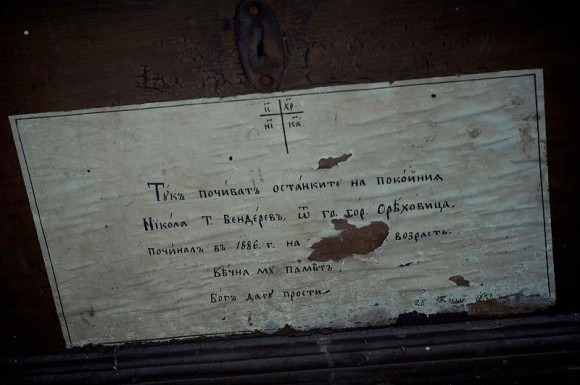 І҃С ХР҃
НИ КА҃
Тукъ почиватъ останките на покойния
Никола Т. Бендеревъ, ѿ гр. Гор. Орѣховица.
Починалъ въ 1886. г. на възрасть.
Вѣчна му Паметъ.
Богъ да гу прости
25